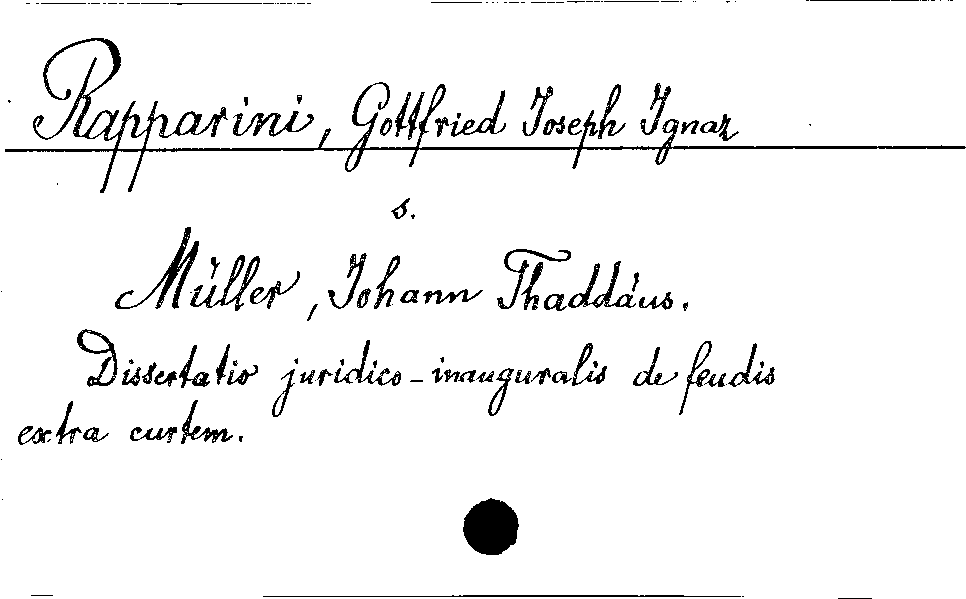 Rapparini, Gottfried Joseph Ignaz
s.
Müller, Johann Thaddäus.
Dissertatio juridico-inauguralis de feudis
extra curtem.